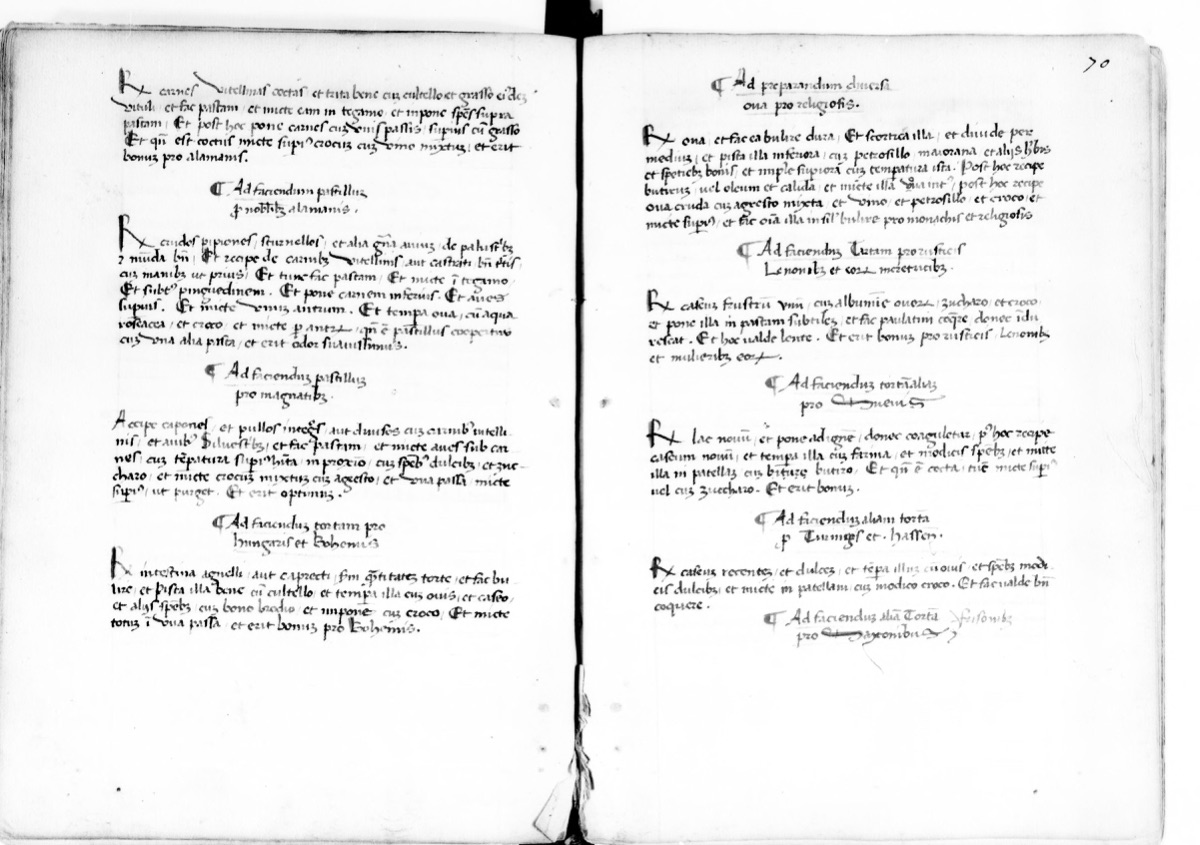 Rx carnes vitellinas coctas et trita bene cuz cultello et grasso
vituli et fac pastam, et micte eam in tegamo, et inpone spēs supra
pastam, Et post hoc pone carnes cuz vuis passis, superius cū grasso
Et qn̄ est coctus micte supiꝰ crocus cuz vino mixtus, et erit
bonus pro alamanis.
¶ Ad faciendum pastilluz
ꝓ nobilibꝫ alamanis.
Rx crudos pipiones, sturnellos, et alia gn̄a auiuz, de
munda bn̄ Et recipe de carnibꝫ vitellinis aut castrati bn̄
cuz manibꝫ ut prius, Et tunc fac pastam, Et micte ī tegamo,
Et subtꝰ pinguedinem. Et pone carnem inferius. Et aues
supius. Et micte vinuz Et temꝑa oua, cū aqua
rosacea, et croco, et micte qn̄ ē pastillus coopertus
cuz vna alia pasta, et erit odor suauissimus.
¶ Ad facienduz pastilluz
pro magnatibꝫ.
Accipe capones, et pullos aut diuisos cuz carnibꝰ uitelli-
nis, et auibꝰ siluestꝰbꝫ, et fac pastam, et micte aues sub car
nes, cuz tēpatura cuz spēbꝰ dulcibꝫ, et zuc-
charo, et micte crocuz mixtuz cuz agresto, et vua passa micte
supiꝰ, ut purget. Et erit optimuz.
¶ Ad facienduz tortam pro
hungaris et bohemis
Rx intestina agnelli, aut capreti, scdm q̄titatez torte, et fac bu
lire, et pista illa bene cū cultello et tempa illa cuz ouis, et caseo,
et alijs spēbꝫ, cuz bono brodio, et inpone cuz croco, Et micte
totuz ī vua passa, et erit bonuz pro bohemis.
70
¶ Ad preparandum diuersa
oua pro religiosis.
Rx oua, et fac ea bulire dura, Et scortica illa, et diuide per
mediuz, et pista illa inferiora, cuz petrosillo, maiorana, et alijs hꝰbis
et spētiebꝫ bonis, et imple supiora cuz tempatura ista. Post hoc recipe
butiruz, uel oleum et calida, et micte illa post hoc recipe
oua cruda cuz agresto mixta, et vino, et petrosillo, et croco, et
micte supiꝰ, et fac oua illa insil bulire pro monachis et religiosis
¶ Ad facienduz Turtam pro rusticis
Lenonibꝫ et eoꝝ meretricibꝫ.
Rx caseuz frustrū vnū, cuz albumīe ouoꝝ, zucharo, et croco,
et pone illa in pastam subtilez, et fac paulatim coqre, donec īdu
rescat. Et hoc ualde lente. Et erit bonus pro rusticis, lenonibꝫ
et mulieribꝫ eoꝝ.
¶ Ad faciendum tortā aliaz
pro Sueuis
Rx lac nouū, et pone ad ignē, donec coaguletur, pꝰ hoc recipe
caseum nouū, et tempa illa cuz farina, et modicis spēbꝫ, et micte
illa in patellaz cuz butiro, Et qn̄ ē cocta, tūc micte supiꝰ
uel cuz zuccharo. Et erit bonuz.
¶ Ad faciendum aliam tortā
ꝓ Turingis et. hassen.
Rx caseuz recentez, et dulcez, et tēpa illuz cū ouis, et spēbꝫ modi
cis dulcibꝫ, et micte in patellam, cuz modico croco. Et fac valde bn̄
coquere.
¶ Ad faciendum aliā Tortā frisonibꝫ
pro Saxonibus